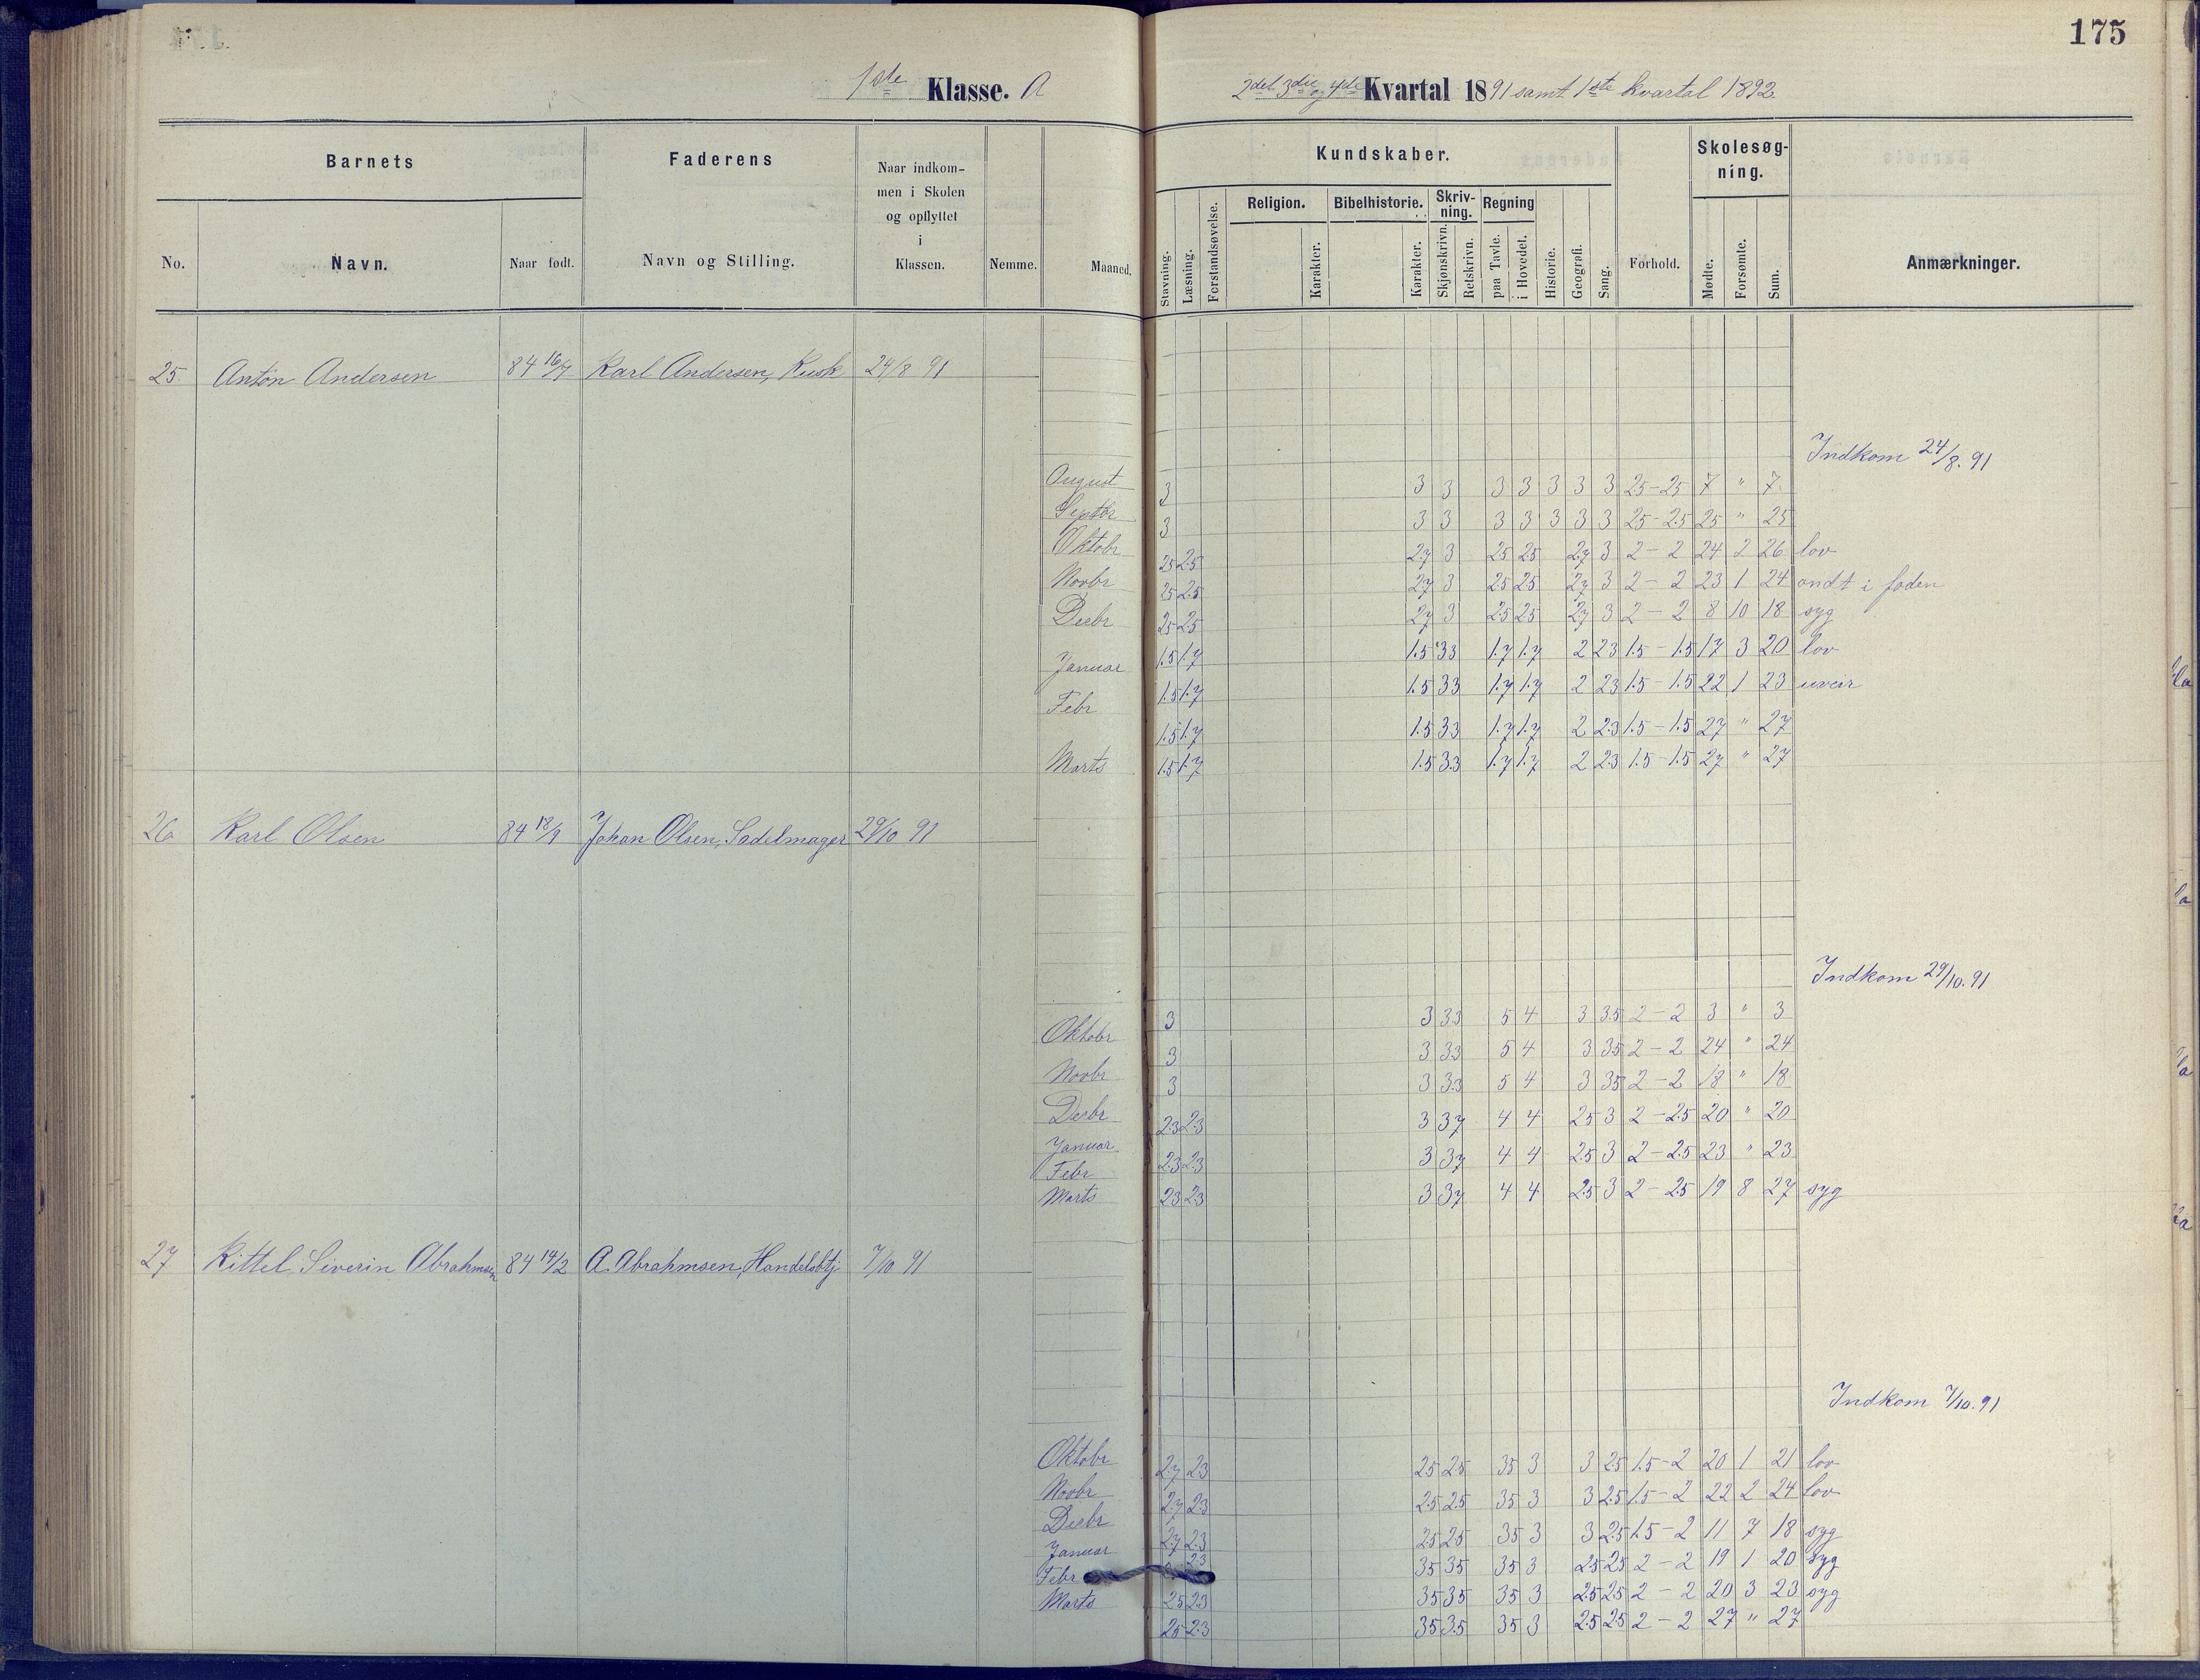 175
1ste Klasse. A
2det 3die og 4de Kvartal 1891 samt 1ste kvartal 1892.
Barnets Faderens Naar indkommen i Skolen og opflyttet i Klassen. Nemme. Maaned. Kundskaber. Forhold. Skolesøgning. Anmærkninger.
No. Navn. Naar født. Navn og Stilling.
Stavning. Læsning. Forstandsøvelse. Religion. Karakter. Bibelhistorie. Karakter. Skrivning. Skjønskrivn. Retskrivn. Regning paa Tavle. i Hovedet. Historie. Geografi. Sang. Mødte. Forsømte. Sum.
25. Anton Andersen 84 16/7 Karl Andersen, Kusk 24/8 91
Indkom 24/8. 91
August 3 3 3 3 3 3 3 3 25-25 7 " 7
Septbr 3 3 3 3 3 3 3 3 25-2.5 25 " 25
Oktobr 25 2.5 2.7 3 25 25 2.7 3 2-2 24 2 26 lov
Novbr 25 2.5 2.7 3 2.5 25 2.7 3 2-2 23 1 24 ondt i foden
Decbr 25 25 2.7 3 2.5 25 2.7 3 2-2 8 10 18 syg
Januar 1.5 1.7 1.5 33 1.7 1.7 2 23 1.5-1.5 17 3 20 lov
Febr 1.5 1.7 1.5 33 1.7 1.7 2 23 1.5-1.5 22 1 23 uveir
1.5 1.7 1.5 33 1.7 1.7 2 2.3 1.5-1.5 27 " 27
Marts 1.5 1.7 1.5 3.3 1.7 1.7 2 23 1.5-1.5 27 " 27
26 Karl Olsen 84 18/9 Johan Olsen, Sadelmager 29/10 91
Indkom 29/10. 91
Oktobr 3 3 33 5 4 3 3.5 2-2 3 " 3
Novbr 3 3 33 5 4 3 35 2-2 24 " 24
Decbr 3 3 33 5 4 3 35 2-2 18 " 18
Januar 2.3 2.3 3 37 4 4 25 3 2-2.5 20 " 20
Febr 2.3 2.3 3 37 4 4 25 3 2-2.5 23 " 23
Marts 23 2.3 3 37 4 4 2.5 3 2-25 19 8 27 syg
27 Kittel Siverin Abrahmsen 84 14/2 A. Abrahmsen, Handelsbtj. 7/10 91
Indkom 7/10. 91
Oktobr 2.7 23 25 25 35 3 3 25 1.5-2 20 1 21 lov
Novbr 2.7 2.3 2.5 2.5 35 3 3 2.5 1.5-2 22 2 24 lov
Decbr 2.7 2.3 25 25 35 3 3 2.5 1.5-2 11 7 18 syg
Januar 23 35 35 35 3 25 25 2-2 19 1 20 syg
Febr 25 23 35 35 35 3 25 25 2-2 20 3 23 syg
Marts 25 2.3 35 3.5 35 3 25 25 2-2 27 " 27